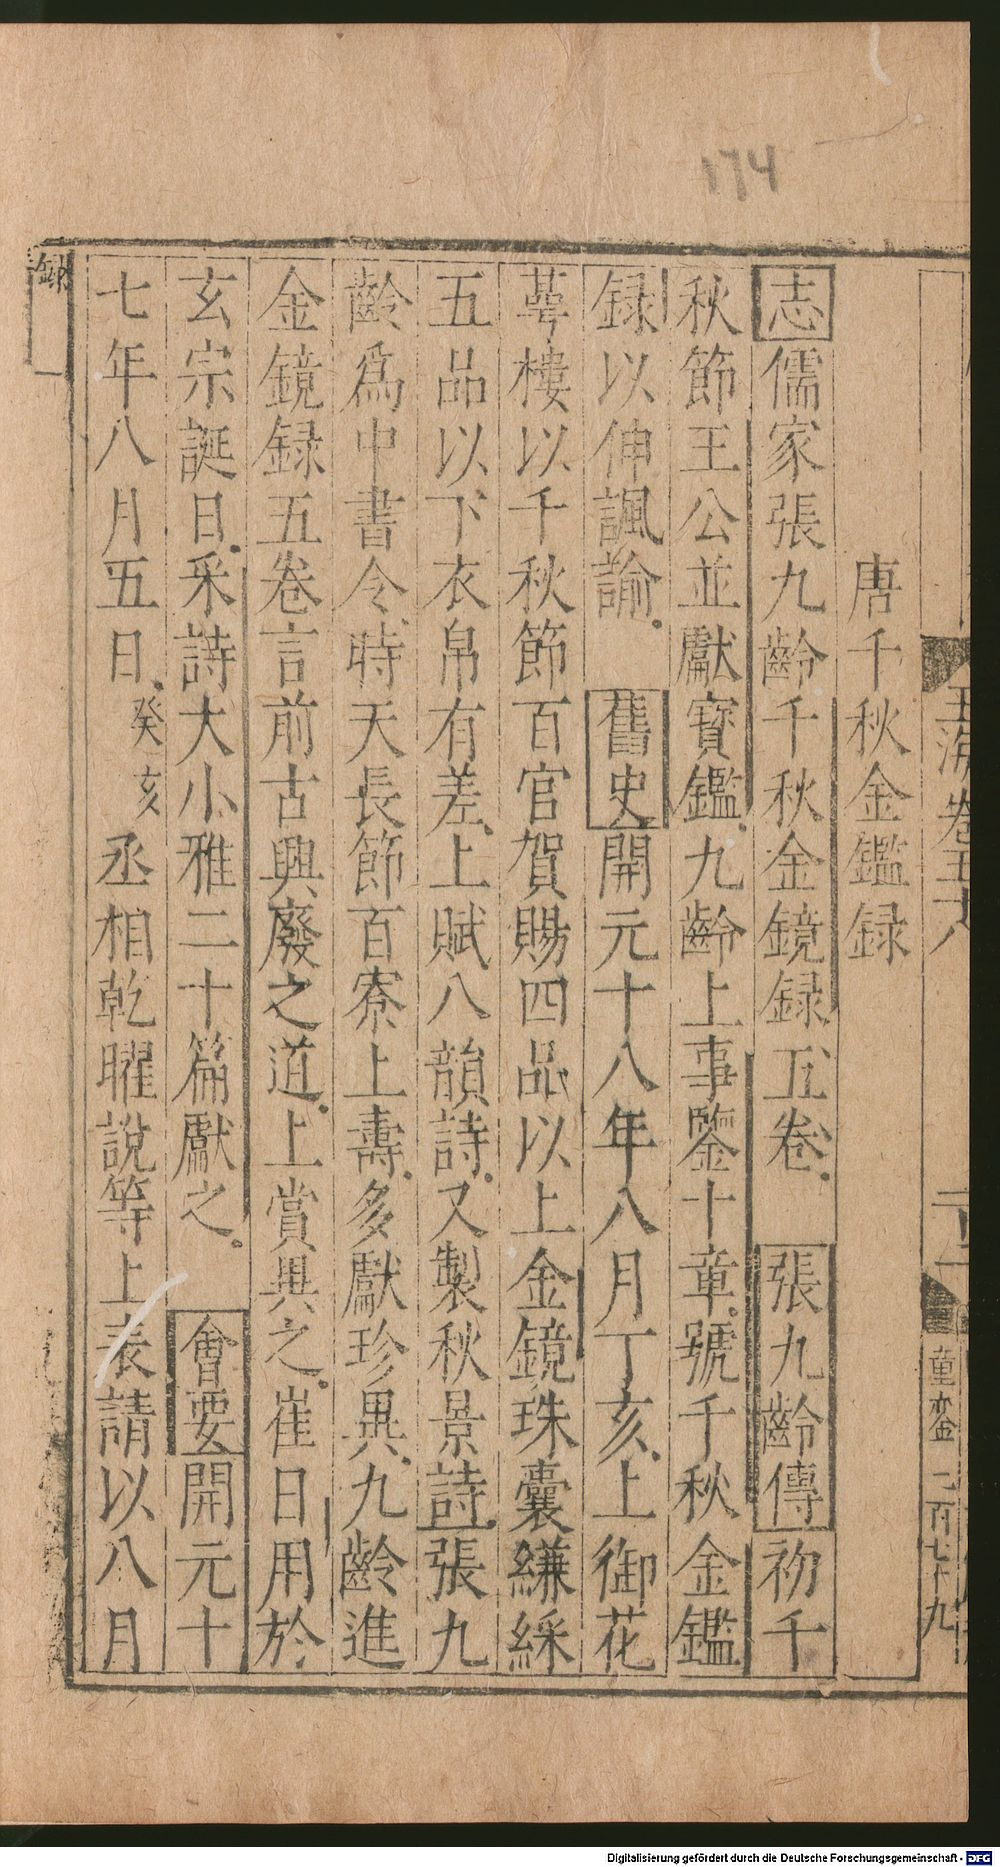 174
玉海卷五十八
童鋈一百七十九
唐千秋金鑑録
志儒家張九齡千秋金鏡録五卷 張九齡傳初千
秋節王公並獻寳鑑九齡上事鑒十章號千秋金鑑
録以伸諷諭 舊史開元十八年八月丁亥上御花
萼樓以千秋節百官賀賜四品以上金鏡珠囊縑綵
五品以下衣帛有差上賦八韻詩又製秋景詩張九
齡爲中書令時天長節百寮上壽多獻珍異九齡進
金鏡録五卷言前古興廢之道上賞異之崔日用於
玄宗誕日采詩大小雅二十篇獻之 會要開元十
七年八月五日癸亥丞相乾曜說等上表請以八月
録一
Digitalisierung gefördert durch die Deutsche Forschungsgemeinschaft - DFG